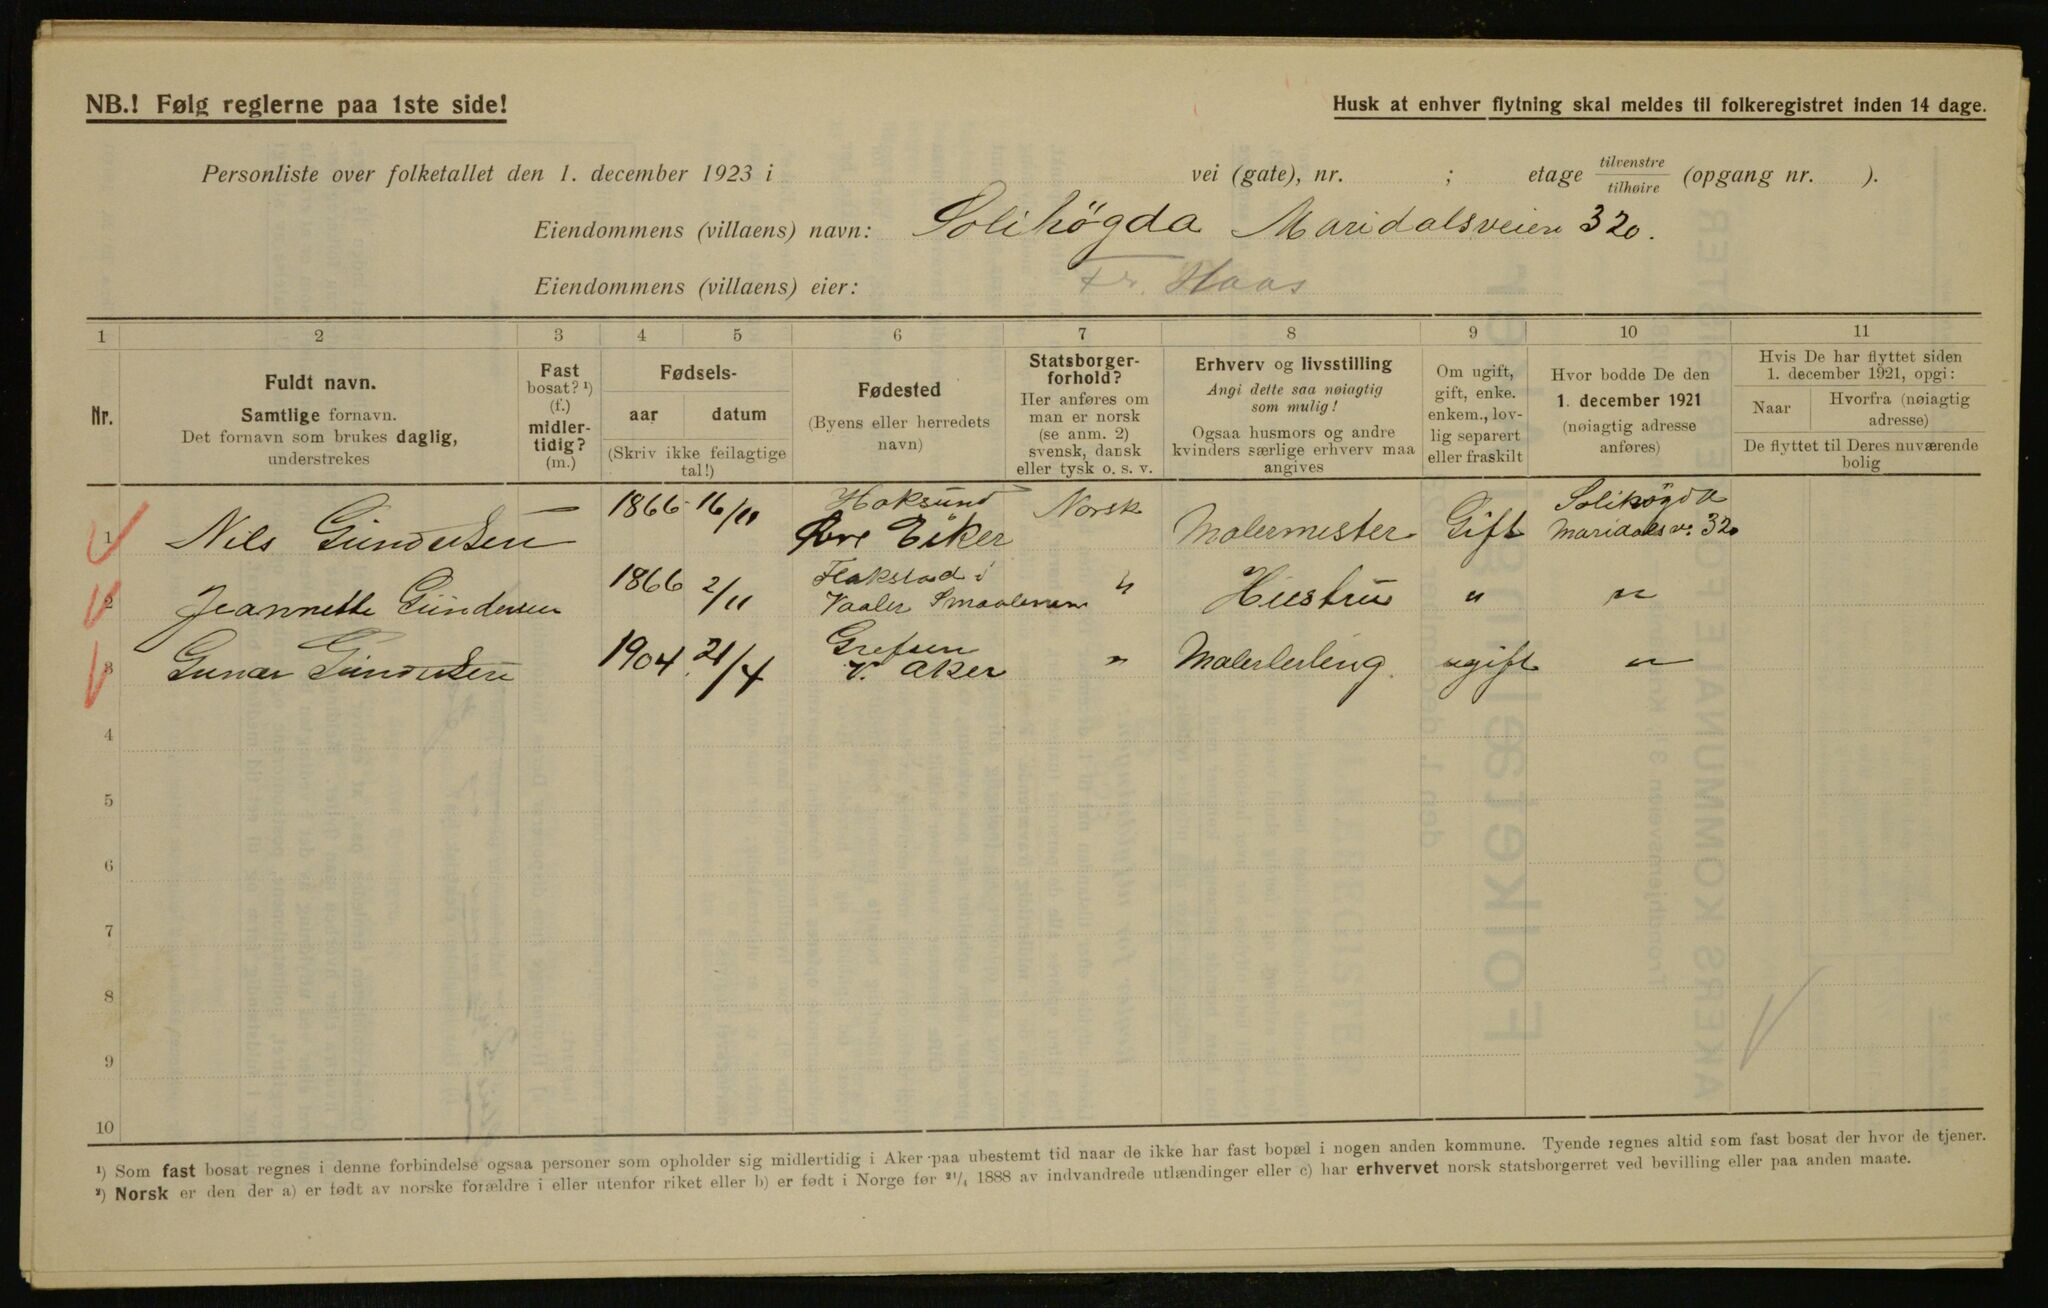 NB.! Følg reglerne paa 1ste side!
Husk at enhver flytning skal meldes til folkeregistret inden 14 dage.
Personliste over folketallet den 1. december 1923 i vei (gate), nr. ; etage tilvenstre / tilhøire (opgang nr. ).
Eiendommens (villaens) navn: Solihögda Maridalsveien 320.
Eiendommens (villaens) eier: Fr. Haas
1 2 3 4 5 6 7 8 9 10 11
Nr.
Fuldt navn.
Samtlige fornavn.
Det fornavn som brukes daglig,
understrekes
Fast
bosat? ¹)
(f.)
midler-
tidig?
(m.)
Fødsels-
aar datum
(Skriv ikke feilagtige
tal!)
Fødested
(Byens eller herredets
navn)
Statsborger-
forhold?
Her anføres om
man er norsk
(se anm. 2)
svensk, dansk
eller tysk o. s. v.
Erhverv og livsstilling
Angi dette saa nøiagtig
som mulig!
Ogsaa husmors og andre
kvinders særlige erhverv maa
angives
Om ugift,
gift, enke.
enkem., lov-
lig separert
eller fraskilt
Hvor bodde De den
1. december 1921
(nøiagtig adresse
anføres)
Hvis De har flyttet siden
1. december 1921, opgi:
Naar
Hvorfra (nøiagtig
adresse)
De flyttet til Deres nuværende
bolig
1 Nils Gundersen 1866 16/11 Haksund Øvre Eiker Norsk Malermester Gift Solihögda Maridalsv. 320
2 Jeannette Gundersen 1866 2/11 Flakstad i Vaaler Smaalenene " Hustru " "
3 Gunar Gundersen 1904 21/4 Grefsen V. Aker " Malerlerling. ugift "
4
5
6
7
8
9
10
¹) Som fast bosat regnes i denne forbindelse ogsaa personer som opholder sig midlertidig i Aker paa ubestemt tid naar de ikke har fast bopæl i nogen anden kommune. Tyende regnes altid som fast bosat der hvor de tjener.
²) Norsk er den der a) er født av norske forældre i eller utenfor riket eller b) er født i Norge før 21/4 1888 av indvandrede utlændinger eller c) har erhvervet norsk statsborgerret ved bevilling eller paa anden maate.